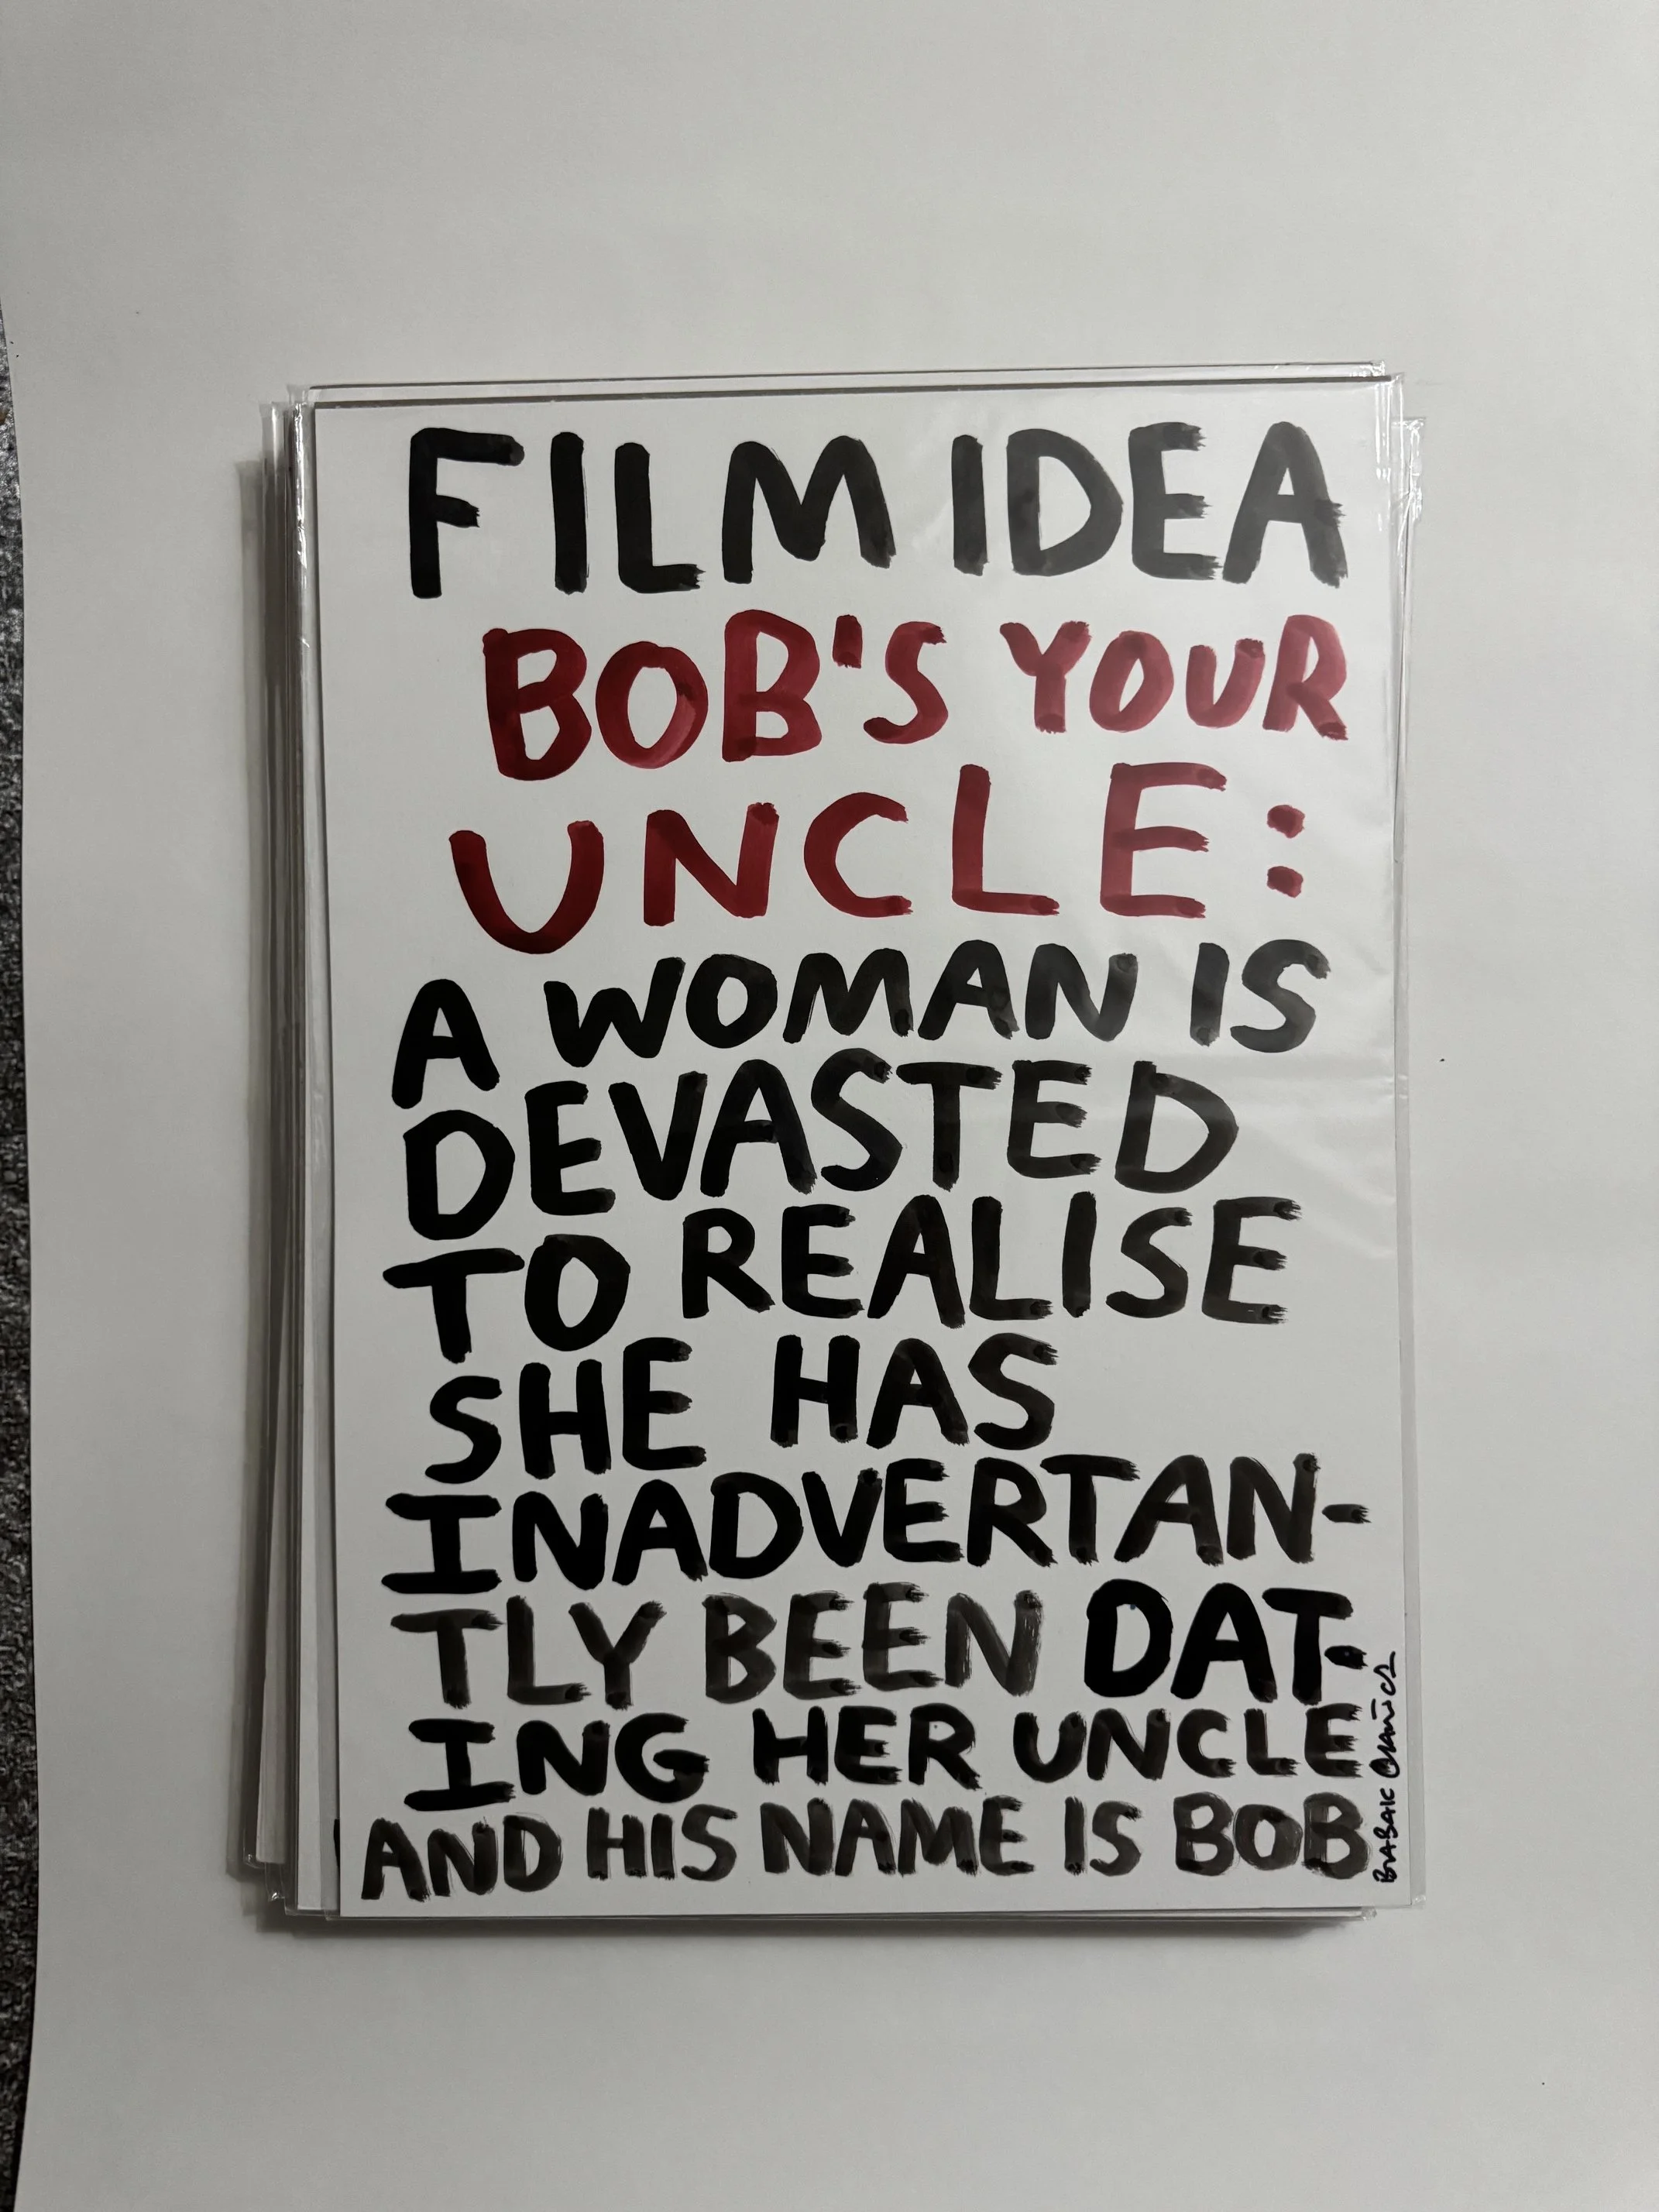 FILM IDEA
BOB'S YOUR
UNCLE:
A WOMAN IS
DEVASTED
TO REALISE
SHE HAS
INADVERTAN-
TLY BEEN DAT-
ING HER UNCLE
AND HIS NAME IS BOB